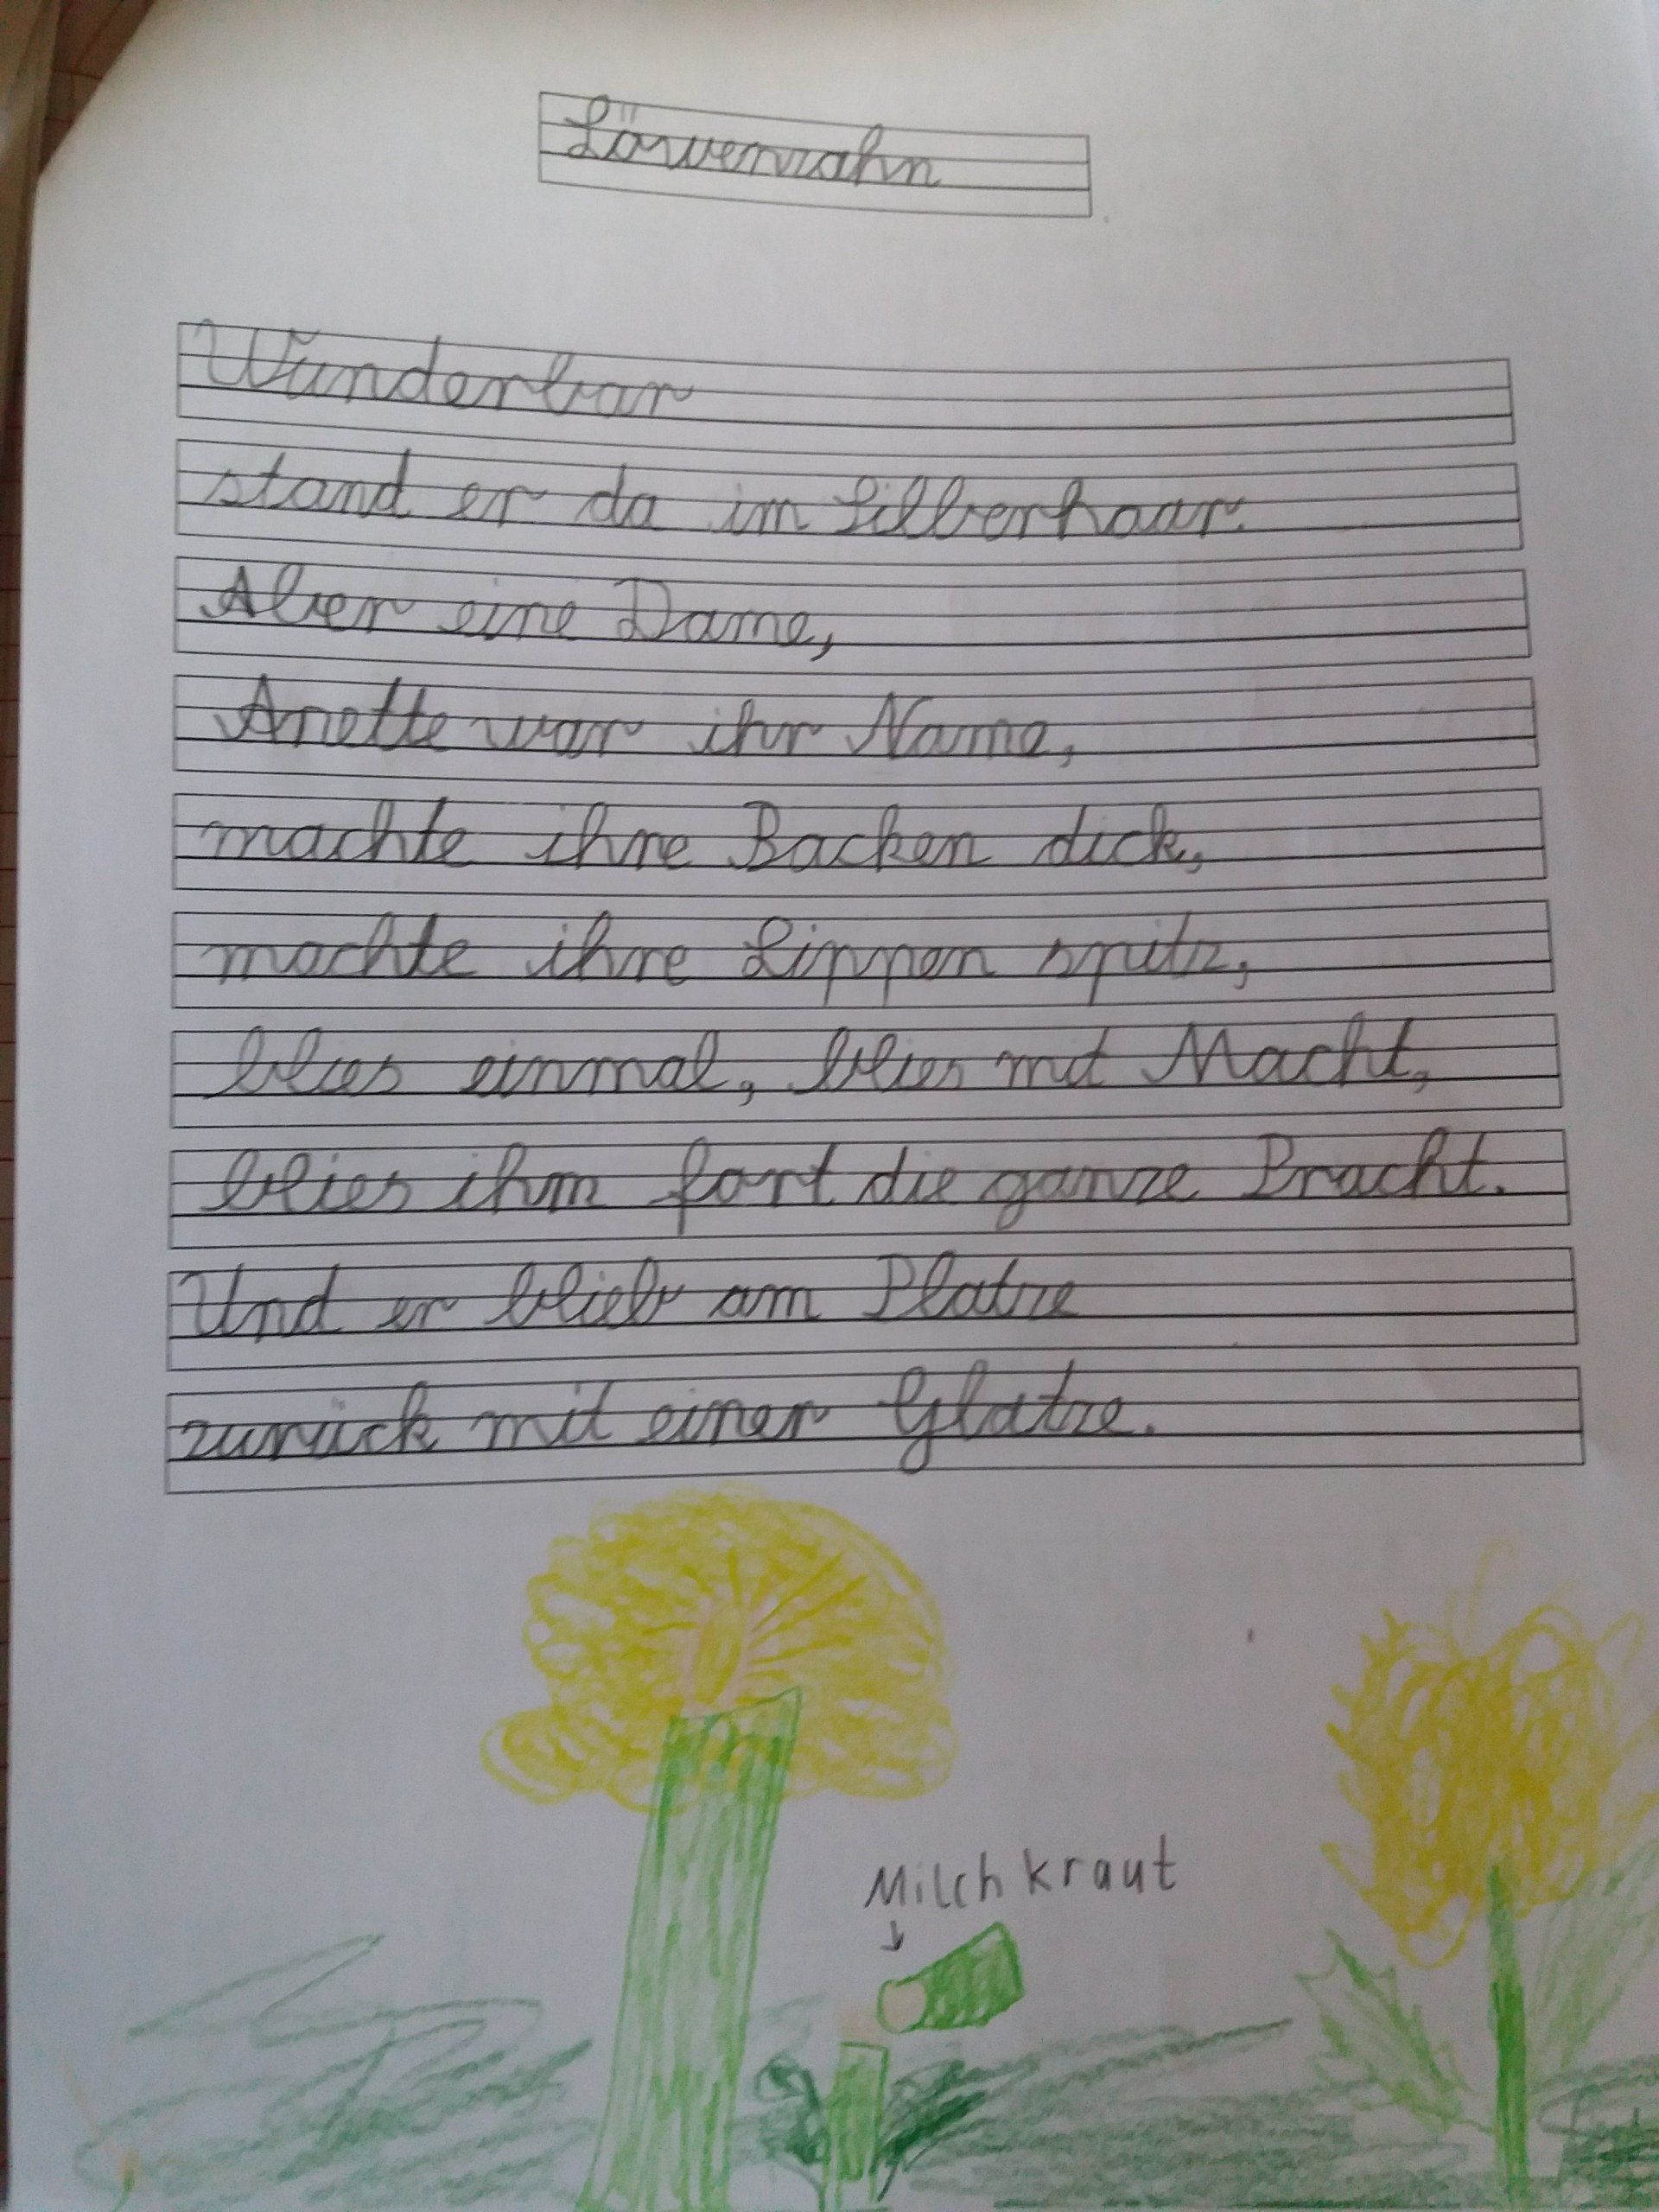 Löwenzahn
Wunderbar
stand er da im Silberhaar.
Aber eine Dame,
Anette war ihr Name,
machte ihre Backen dick,
machte ihre Lippen spitz,
blies einmal, blies mit Macht,
blies ihm fort die ganze Pracht.
Und er blieb am Platze
zurück mit einer Glatze.
Milchkraut